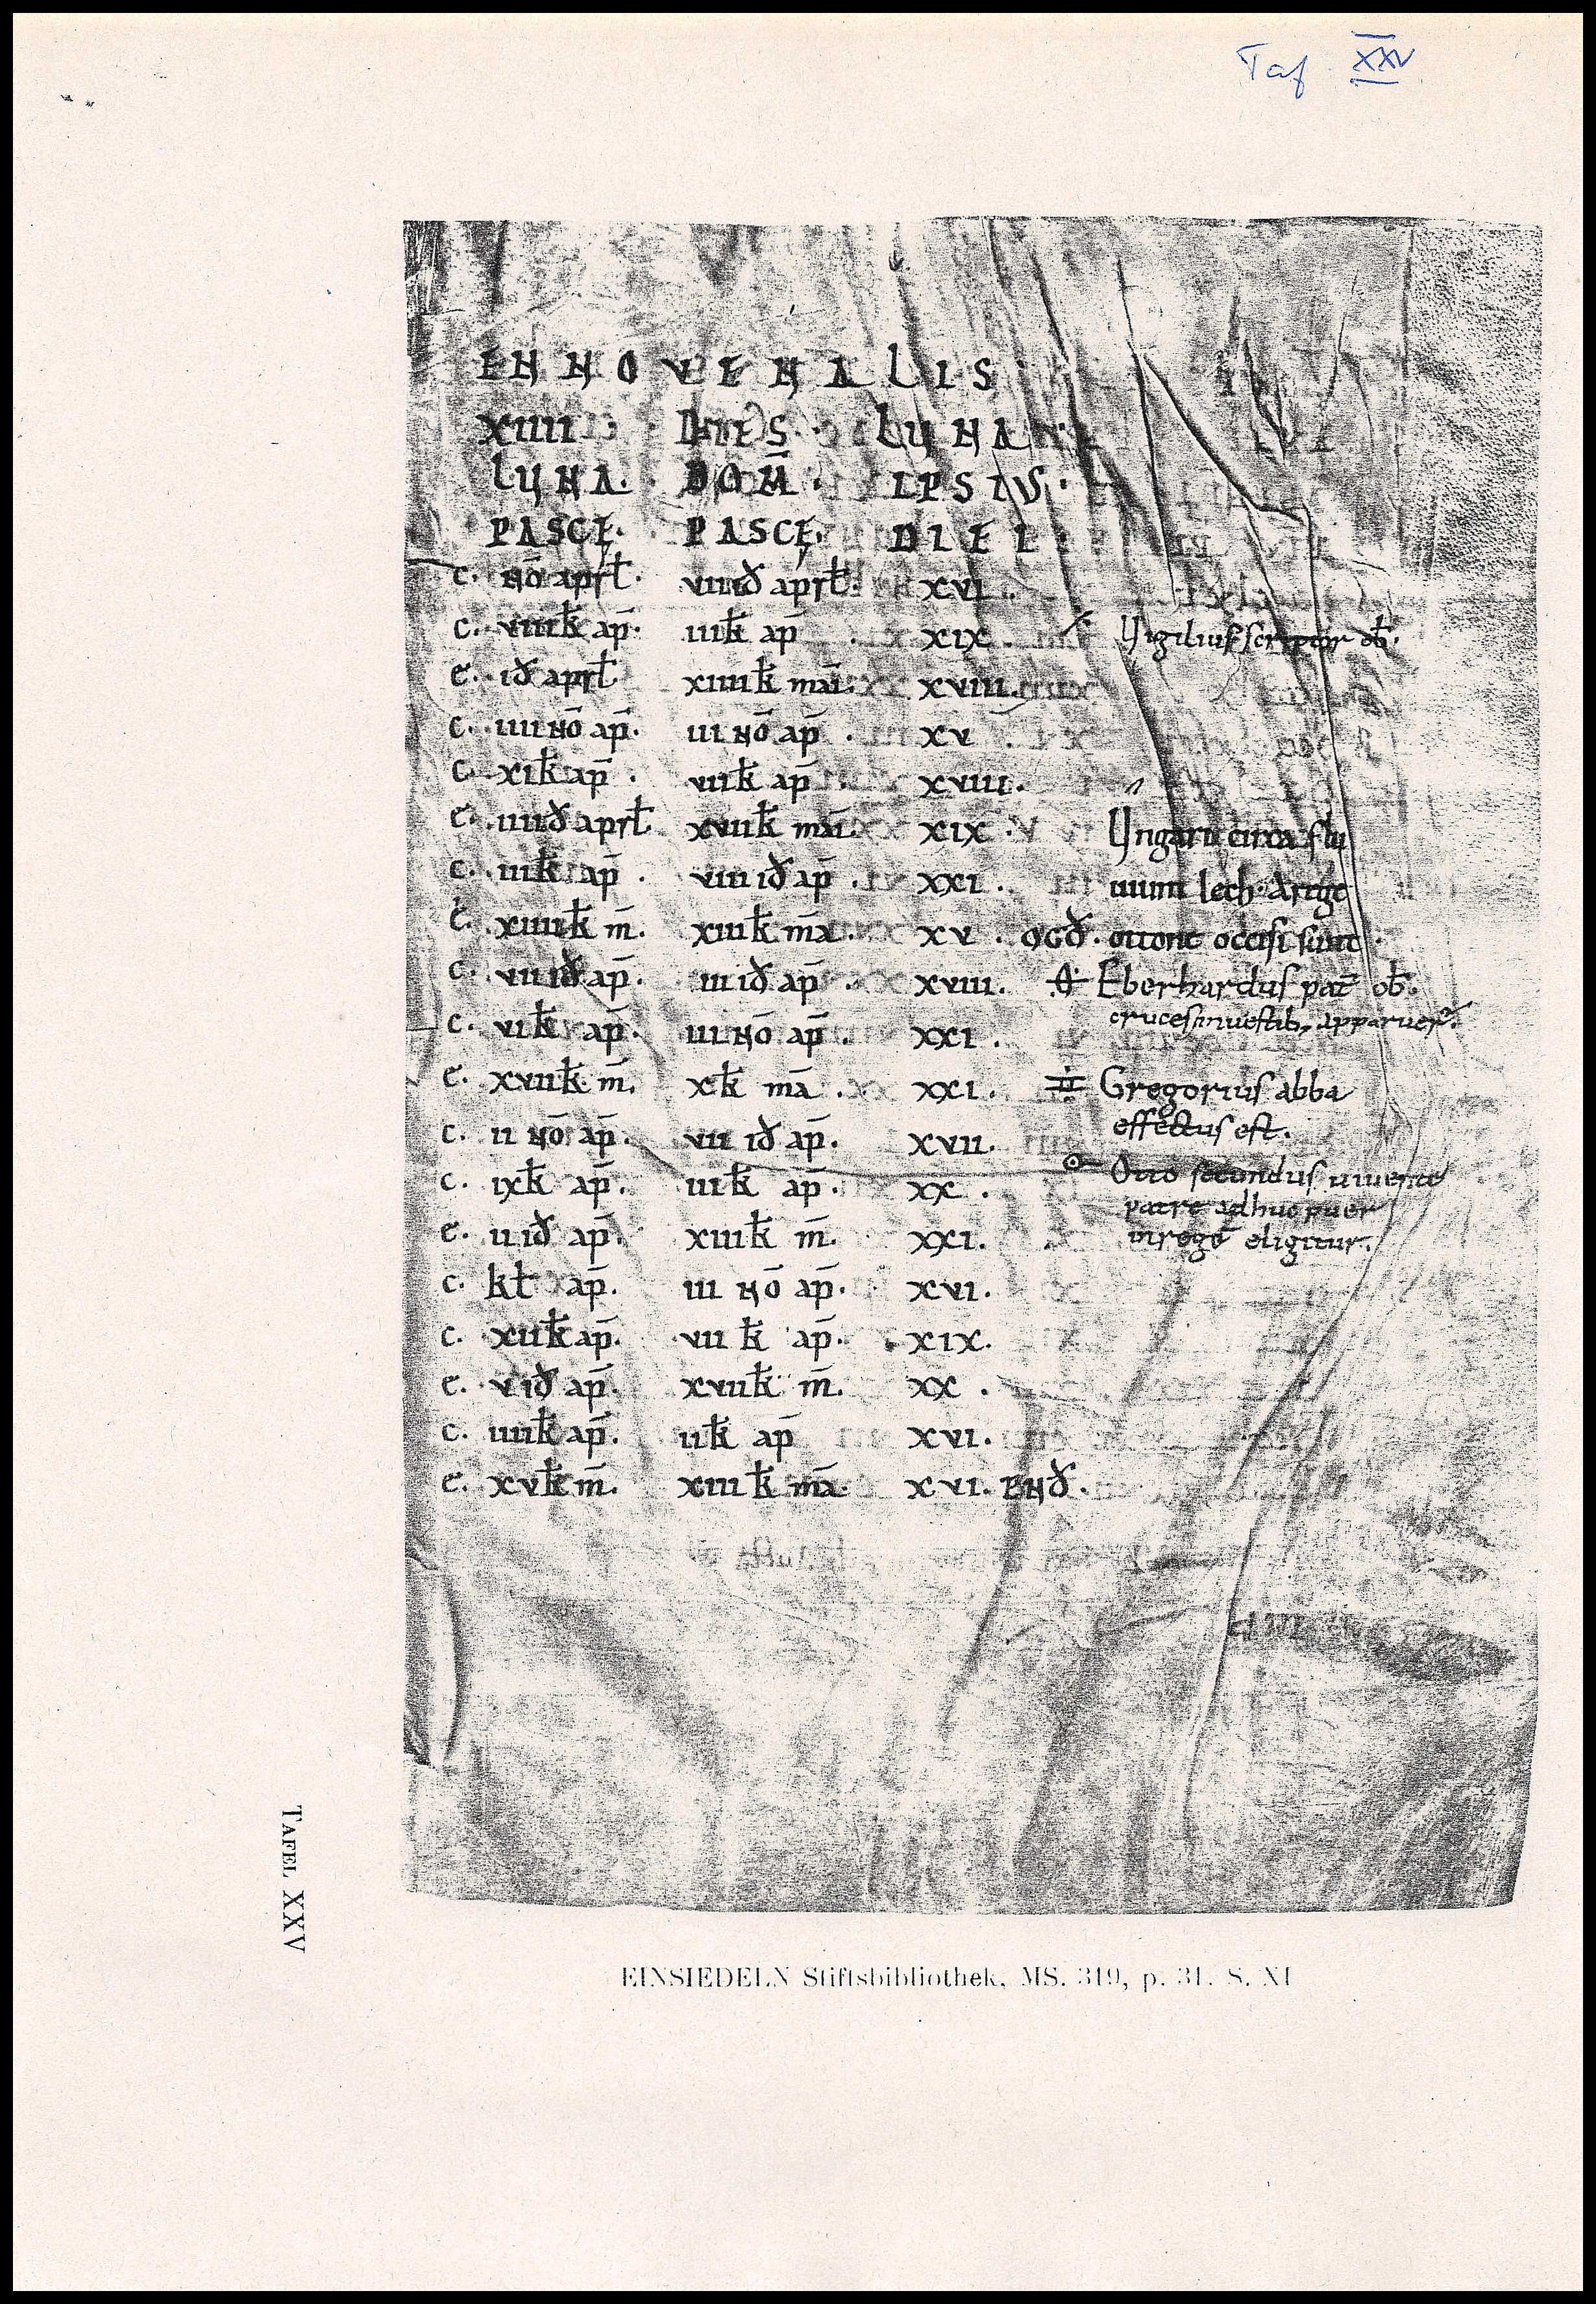 Taf. XXV
ENNOVENALIS
XIIII · DIES · LUNA
LUNA · DOM̄ · IPSIUS ·
PASCĘ · PASCĘ · DIEI
c. nō aprł · viii iđ aprł · xvi .
c. viiii k̄ ap̄ · iiii k̄ ap̄ xix . Vigilius scriptor ob̄ ·
e. iđ aprł xiiii k̄ mai · xviii .
c. iiii nō ap̄ · iii nō ap̄ · xv
c. xi k̄ ap̄ · vii k̄ ap̄ · xviii .
e. iiii iđ aprł xvii k̄ mai · xix · Vngarii circa flu
c. iii k̄ ap̄ · viii iđ ap̄ · xxi . uium lech · A rege
e. xiiii k̄ m̄ . xiii k̄ mā . xv . ogđ . ottone occisi sunt .
c. vii iđ ap̄ . iii iđ ap̄ xviii . Eberhardus pat̄ ob̄ .
cruces in uestib; apparuer̄ .
c. vi k̄ ap̄ . iii nō ap̄ . xxi .
e. xvii k̄ m̄ . x k̄ mā . xxi . Gregorius abba
effectus est .
c. ii nō ap̄ . vii iđ ap̄ . xvii .
c. ix k̄ ap̄ . iiii k̄ ap̄ . xx . Otto secundus uiuente
patre adhuc puer
in regē eligitur .
e. ii iđ ap̄ . xiii k̄ m̄ . xxi .
c. kł ap̄ . iii nō ap̄ . xvi .
c. xii k̄ ap̄ . vii k̄ ap̄ . xix .
e. v iđ ap̄ . xvii k̄ m̄ . xx .
c. iiii k̄ ap̄ . ii k̄ ap̄ xvi .
e. xv k̄ m̄ . xiii k̄ mā . xvi . enđ .
TAFEL XXV
EINSIEDELN Stiftsbibliothek, MS. 319, p. 31. S. XI